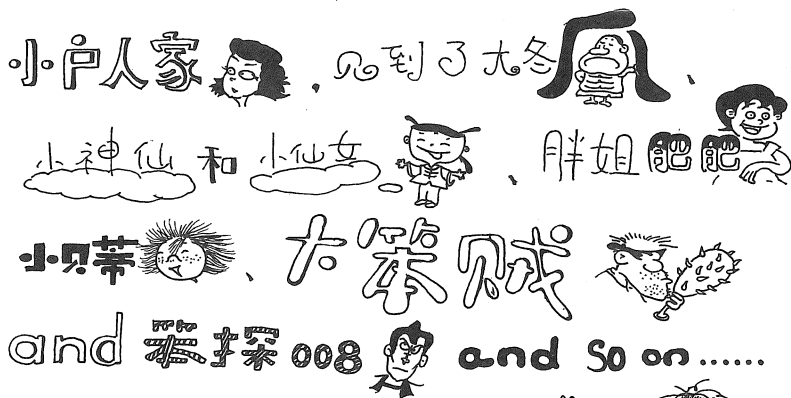 小户人家、见到了大冬瓜、
小神仙和小仙女、胖姐肥肥
小贝蒂、大笨贼
and 笨探008 and so on......